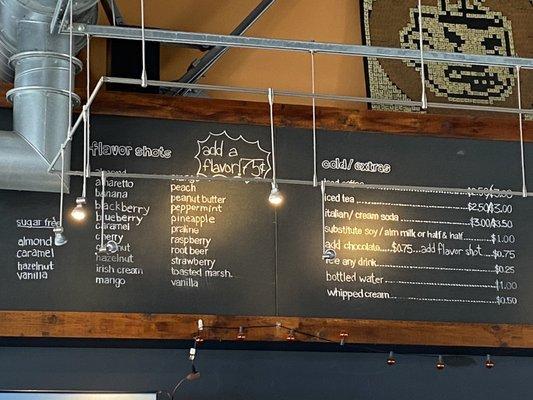 flavor shots
add a
flavor 75¢
amaretto
banana
blackberry
blueberry
caramel
cherry
hazelnut
irish cream
mango
peach
peanut butter
peppermint
pineapple
praline
raspberry
root beer
strawberry
toasted marsh.
vanilla
sugar free
almond
caramel
hazelnut
vanilla
cold / extras
iced tea $2.50/$3.00
italian / cream soda $3.00/$3.50
substitute soy / alm milk or half & half $1.00
add chocolate $0.75 add flavor shot $0.75
ice any drink $0.25
bottled water $1.00
whipped cream $0.50